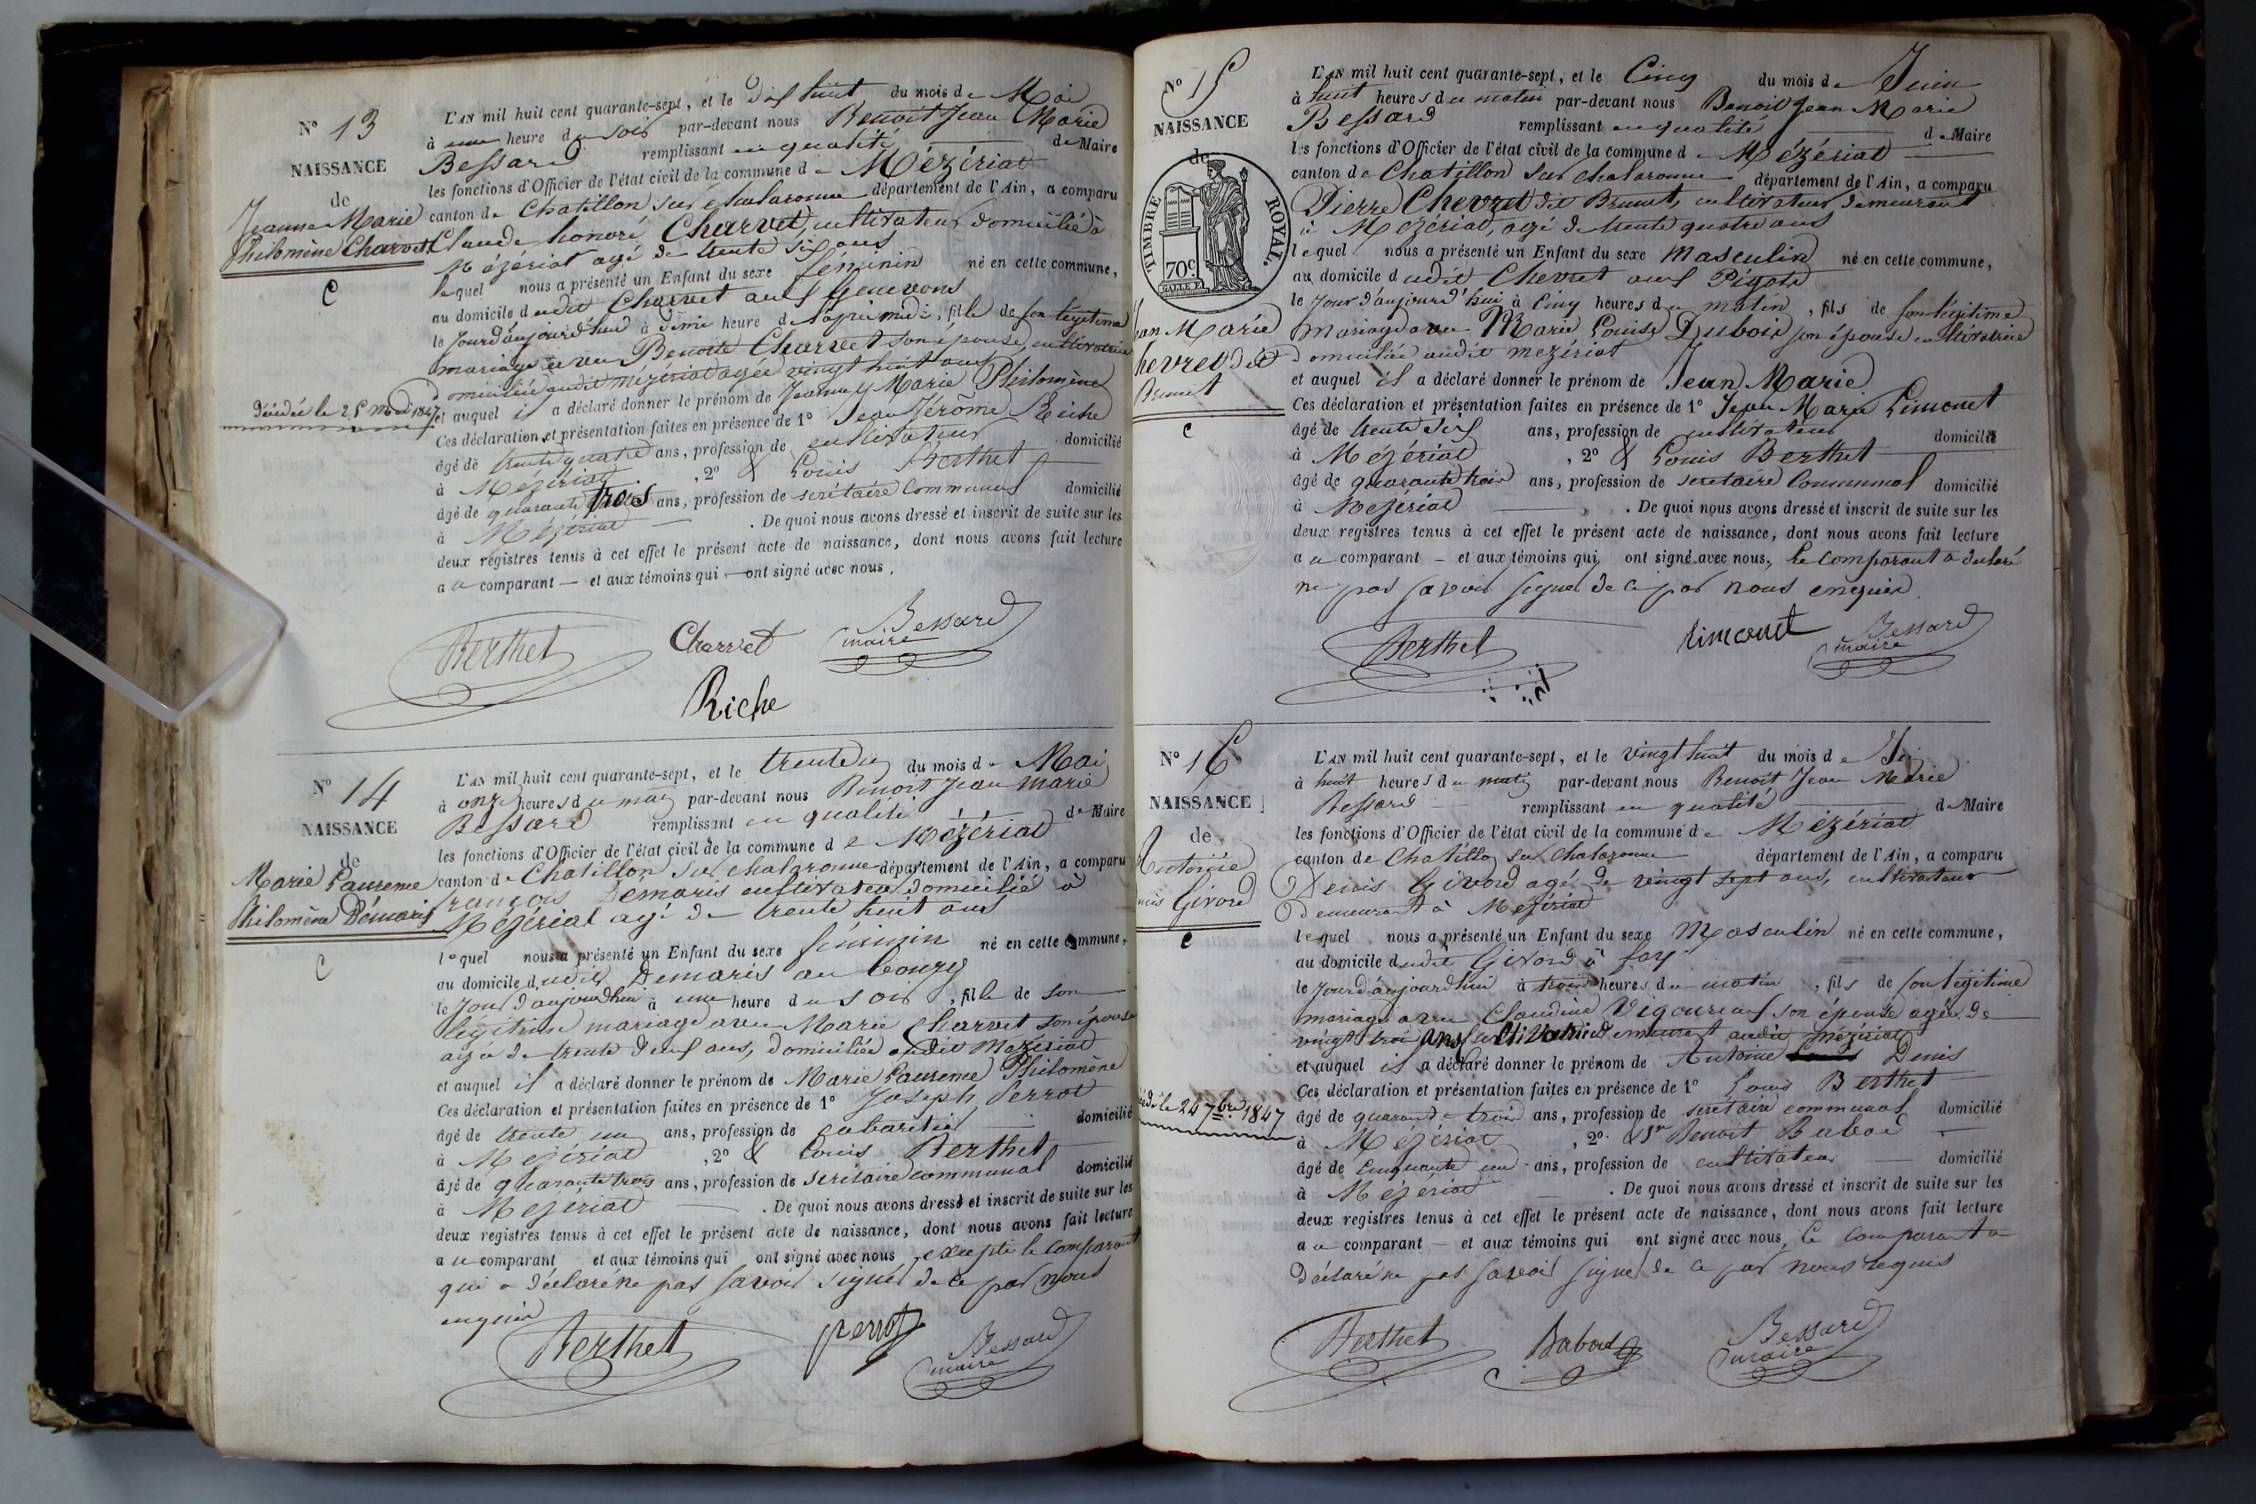 N° 13
NAISSANCE
de
Jeanne Marie
Philomène Charvet
C
Décédée le 25 mai 1847
L'AN mil huit cent quarante-sept, et le dix huit du mois de Mai
à une heure du soir par-devant nous Benoit Jean Marie
Bessard remplissant en qualité de Maire
les fonctions d'Officier de l'état civil de la commune de Mézériat
canton de Chatillon sur chalaronne département de l'Ain, a comparu
Claude honoré Charvet, cultivateur domicilié à
Mézériat agé de trente six ans
lequel nous a présenté un Enfant du sexe féminin né en cette commune,
au domicile dudit Charvet aux Genevons
le jour d'aujourd'hui à demie heure de l'après midi, fille de son légitime
mariage avec Benoite Charvet son épouse, cultivatrice
domiciliée audit mézériat agée vingt huit ans
et auquel il a déclaré donner le prénom de Jeanne Marie Philomène
Ces déclaration et présentation faites en présence de 1° Jean Jérôme Riche
âgé de trente quatre ans, profession de cultivateur domicilié
à Mézériat, 2° & Louis Berthet
âgé de quarante trois ans, profession de secrétaire Communal domicilié
à Mézériat . De quoi nous avons dressé et inscrit de suite sur les
deux registres tenus à cet effet le présent acte de naissance, dont nous avons fait lecture
au comparant — et aux témoins qui — ont signé avec nous.
Berthet Charvet Bessard
maire
Riche
N° 14
NAISSANCE
de
Marie Laurence
Philomène Démaris
C
L'AN mil huit cent quarante-sept, et le trente un du mois de Mai
à onze heures du matin par-devant nous Benoit Jean Marie
Bessard remplissant en qualité de Maire
les fonctions d'Officier de l'état civil de la commune de Mézériat
canton de Chatillon sur chalaronne département de l'Ain, a comparu
françois Démaris cultivateur domicilié à
Mézériat agé de trente huit ans
lequel nous a présenté un Enfant du sexe féminin né en cette commune,
au domicile dudit Demaris au
le Jour d'aujourd'hui à une heure du soir, fille de son
légitime mariage avec Marie Charvet son épouse
agée de trente deux ans, domiciliée audit Mézériat
et auquel il a déclaré donner le prénom de Marie Laurence Philomène
Ces déclaration et présentation faites en présence de 1° Joseph Perrot
âgé de trente un ans, profession de cabaretier domicilié
à Mézériat, 2° & Louis Berthet
âgé de quarante trois ans, profession de secrétaire communal domicilié
à Mézériat . De quoi nous avons dressé et inscrit de suite sur les
deux registres tenus à cet effet le présent acte de naissance, dont nous avons fait lecture
au comparant et aux témoins qui ont signé avec nous, excepté le comparant
qui a déclaré ne pas savoir signer de ce par nous
enquis
Berthet Perrot Bessard
maire
N° 15
NAISSANCE
de
TIMBRE ROYAL.
70c.
Jean Marie
Chevret dit
Brunet
C
L'AN mil huit cent quarante-sept, et le Cinq du mois de Juin
à huit heures du matin par-devant nous Benoit Jean Marie
Bessard remplissant en qualité de Maire
les fonctions d'Officier de l'état civil de la commune de Mézériat
canton de Chatillon sur chalaronne département de l'Ain, a comparu
Pierre Chevret dit Brunet, cultivateur demeurant
à Mézériat, agé de trente quatre ans
lequel nous a présenté un Enfant du sexe masculin né en cette commune,
au domicile dudit Chevret aux
le Jour d'aujourd'hui à cinq heures du matin, fils de son légitime
mariage avec Marie Louise Dubois son épouse cultivatrice
domiciliée audit mézériat
et auquel il a déclaré donner le prénom de Jean Marie
Ces déclaration et présentation faites en présence de 1° Jean Marie Limonet
âgé de trente six ans, profession de cultivateur domicilié
à Mézériat, 2° & Louis Berthet
âgé de quarante trois ans, profession de secrétaire Communal domicilié
à Mézériat . De quoi nous avons dressé et inscrit de suite sur les
deux registres tenus à cet effet le présent acte de naissance, dont nous avons fait lecture
au comparant — et aux témoins qui ont signé avec nous, le comparant a déclaré
ne pas savoir signer de ce par nous enquis
Berthet Limonet Bessard
maire
N° 16
NAISSANCE
de
Antoine
Denis Givord
C
Décédé le 24 7bre 1847
L'AN mil huit cent quarante-sept, et le vingt huit du mois de
à huit heures du matin par-devant nous Benoit Jean Marie
Bessard remplissant en qualité de Maire
les fonctions d'Officier de l'état civil de la commune de Mézériat
canton de Chatillon sur Chalaronne département de l'Ain, a comparu
Denis Givord agé de vingt sept ans, cultivateur
demeurant à Mézériat
lequel nous a présenté un Enfant du sexe Masculin né en cette commune,
au domicile dudit Givord à fay
le Jour d'aujourd'hui à trois heures du matin, fils de son légitime
mariage avec Claudine Vigoureux son épouse agée de
vingt trois ans cultivatrice demeurant audit Mézériat
et auquel il a déclaré donner le prénom de Antoine Denis
Ces déclaration et présentation faites en présence de 1° Louis Berthet
âgé de quarante trois ans, profession de secrétaire communal domicilié
à Mézériat, 2° & Sr Benoit Babad
âgé de cinquante un ans, profession de cultivateur domicilié
à Mézériat . De quoi nous avons dressé et inscrit de suite sur les
deux registres tenus à cet effet le présent acte de naissance, dont nous avons fait lecture
au comparant — et aux témoins qui ont signé avec nous, le comparant a
déclaré ne pas savoir signer de ce par nous requis
Berthet Babad Bessard
maire